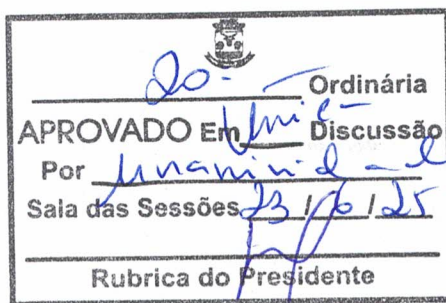 20ª Ordinária
APROVADO Em Única Discussão
Por unanimidade
Sala das Sessões 23 / 6 / 25
Rubrica do Presidente